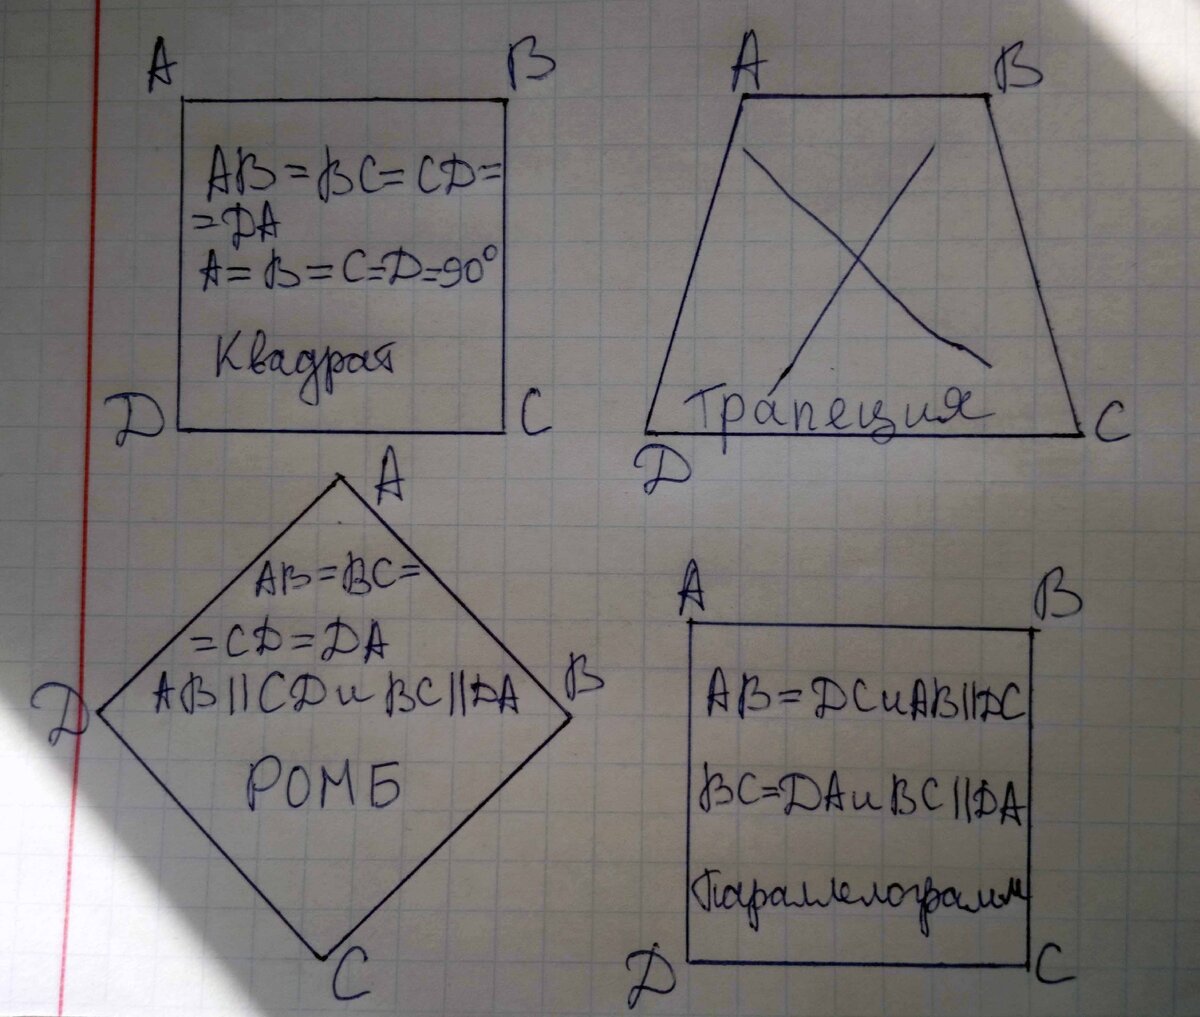 A B
AB = BC = CD =
= DA
A = B = C = D = 90°
Квадрат
D C
A B
Трапеция
D C
A
AB = BC =
= CD = DA
D B
AB || CD и BC || DA
РОМБ
C
A B
AB = DC и AB || DC
BC = DA и BC || DA
Параллелограмм
D C